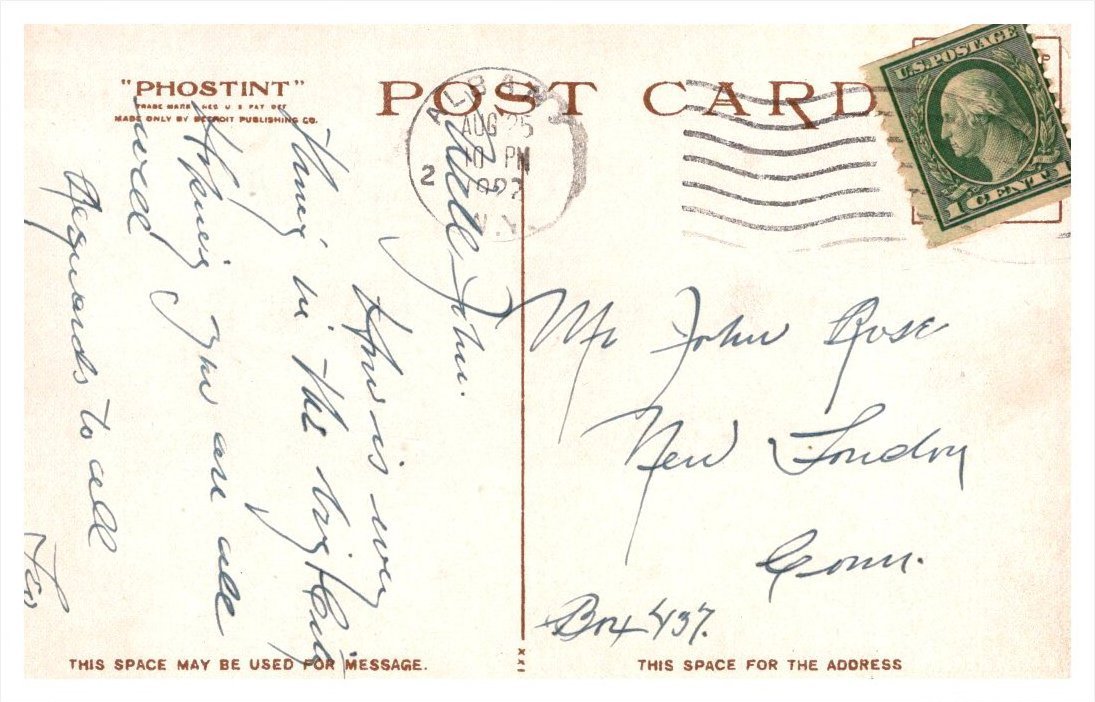 "PHOSTINT"
TRADE MARK REG U S PAT OFF
MADE ONLY BY DETROIT PUBLISHING CO.
POST CARD
ALBANY
AUG 25
10 PM
N.Y.
2
U.S. POSTAGE
1 CENT 1
Well John.
How is every
thing in the big City
Hoping you are all
well
Regards to all
Mr John Rose
New London
Conn.
Box 437.
XXI
THIS SPACE MAY BE USED FOR MESSAGE.
THIS SPACE FOR THE ADDRESS